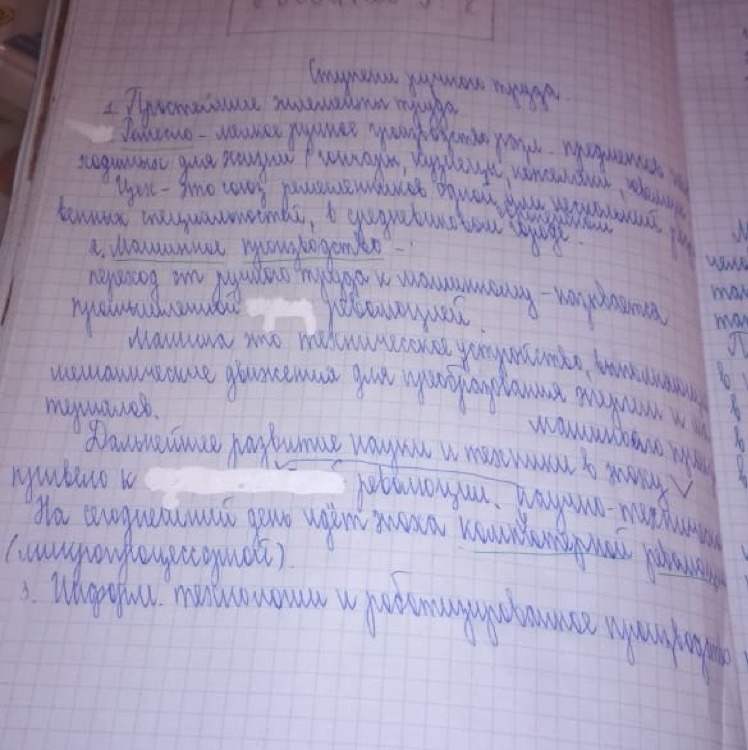 Ступени ручного труда.
1. Простейшие элементы труда
Ремесло - мелкое ручное производство разл. предметов
ходимых для жизни (гончары, кузнецы,
Цех - это союз ремесленников одной или нескольких
венных специальностей, в средневековом
городе.
2. Машинное производство -
переход от ручного труда к машинному - называется
промышленной революцией.
Машина это техническое устройство, выполняющее
механические движения для преобразования энергии и
териалов.
машинного
Дальнейшее развитие науки и техники в эпоху V
привело к революции. научно-техническ
На сегодняшний день идёт эпоха компьютерной революции
(микропроцессорной).
3. Информ. технологии и роботизированное производство